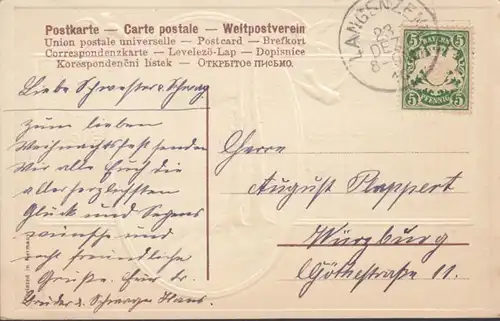 Postkarte — Carte postale — Weltpostverein
Union postale universelle — Postcard — Brefkort
Correspondenzkarte — Levelező-Lap — Dopisnice
Korespondenční listek — ОТКРЫТОЕ ПИСЬМО.
LANGENZENN
23
DEZ
8-9
BAYERN
5 5
PFENNIG
Liebe Schwester & Schwag
zum lieben
Weihnachtsfest senden
Wir alle Euch die
allerherzlichsten
Glück und Segens
wünsche und
recht freundliche
Grüße. Euer tr.
Bruder & Schwager Hans.
Herrn
August Plappert
Würzburg
Göthestraße 11.